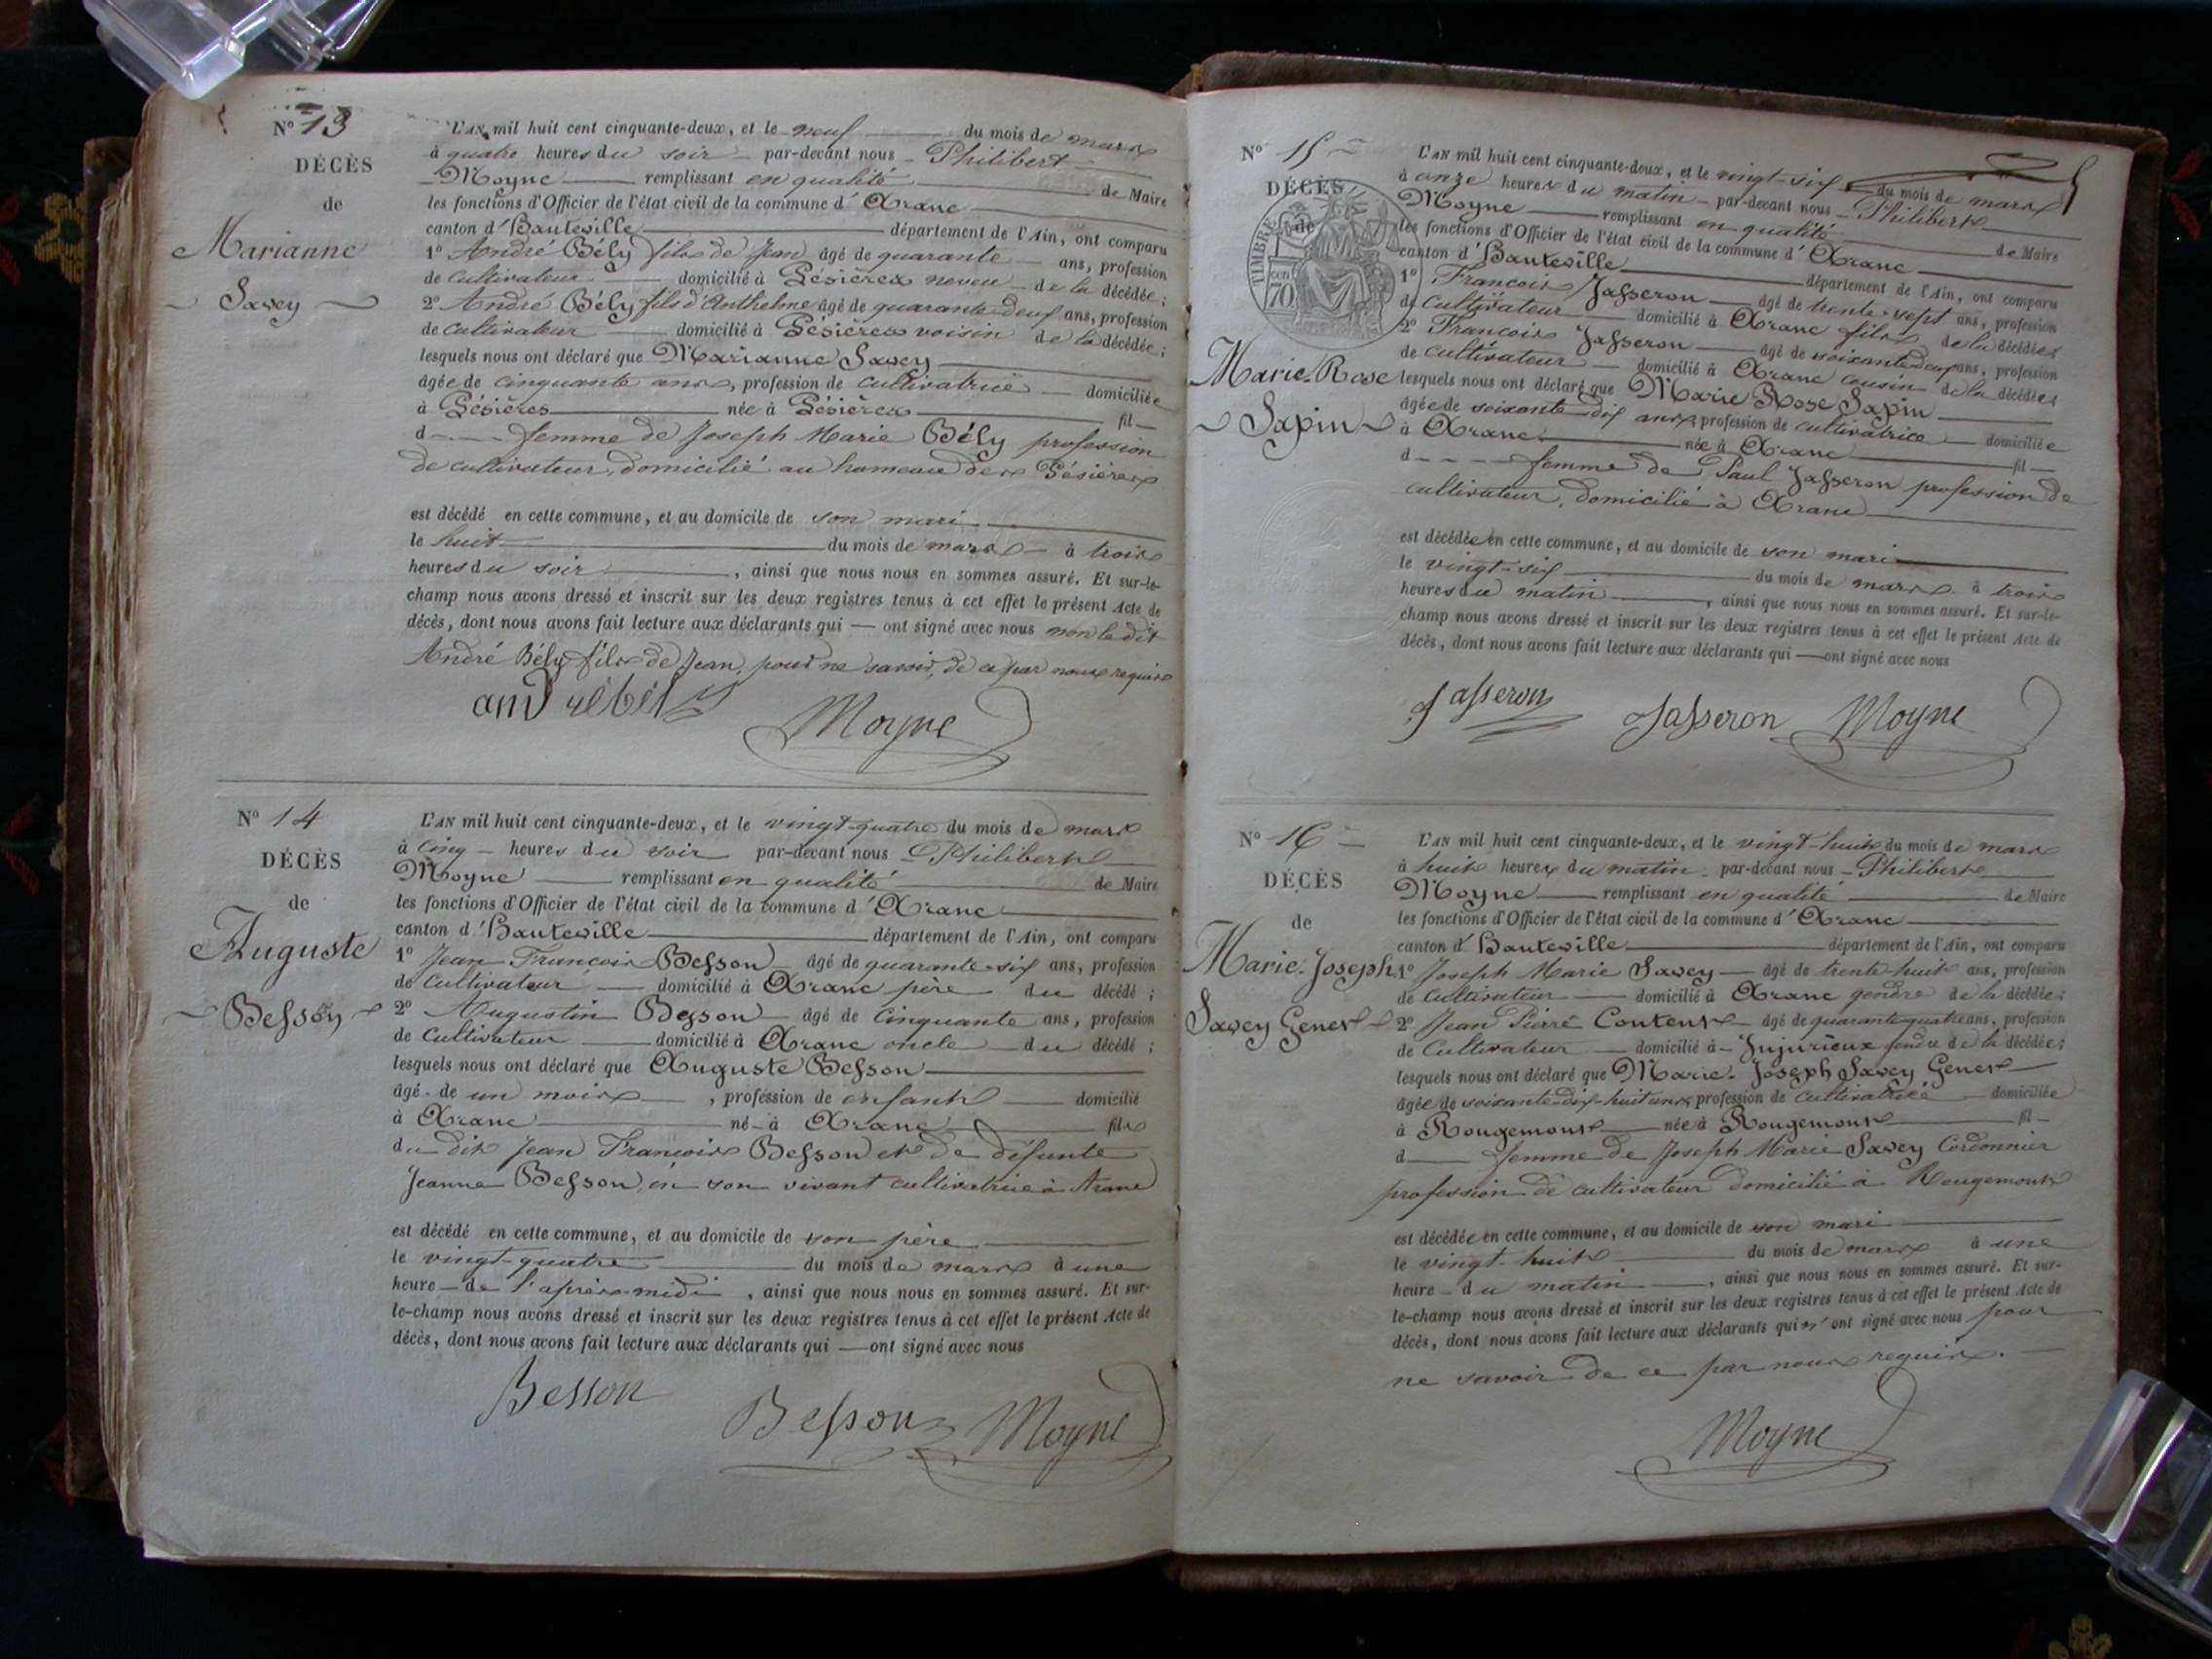 No 13
DÉCÈS
de
Marianne
Savey
L'AN mil huit cent cinquante-deux, et le neuf du mois de mars
à quatre heures du soir par-devant nous Philibert
Moyne remplissant en qualité de Maire
les fonctions d'Officier de l'état civil de la commune d'Aranc
canton d'Hauteville département de l'Ain, ont comparu
1o André Bély fils de Jean âgé de quarante ans, profession
de cultivateur domicilié à Résières neveu de la décédée;
2o André Bély fils d'Anthelme âgé de quarante deux ans, profession
de cultivateur domicilié à Résières voisin de la décédée;
lesquels nous ont déclaré que Marianne Savey
âgée de cinquante ans, profession de cultivatrice domiciliée
à Résières née à Résières fil
d femme de Joseph Marie Bély profession
de cultivateur, domicilié au hameau des Résières
est décédé en cette commune, et au domicile de son mari
le huit du mois de mars à trois
heures du soir, ainsi que nous nous en sommes assuré. Et sur-le-
champ nous avons dressé et inscrit sur les deux registres tenus à cet effet le présent Acte de
décès, dont nous avons fait lecture aux déclarants qui ont signé avec nous non le dit
André Bély fils de Jean, pour ne savoir, de ce par nous requis
andrébély
Moyne
No 14
DÉCÈS
de
Auguste
Besson
L'AN mil huit cent cinquante-deux, et le vingt-quatre du mois de mars
à cinq heures du soir par-devant nous Philibert
Moyne remplissant en qualité de Maire
les fonctions d'Officier de l'état civil de la commune d'Aranc
canton d'Hauteville département de l'Ain, ont comparu
1o Jean François Besson âgé de quarante-six ans, profession
de cultivateur domicilié à Aranc père du décédé;
2o Augustin Besson âgé de cinquante ans, profession
de cultivateur domicilié à Aranc oncle du décédé;
lesquels nous ont déclaré que Auguste Besson
âgé de un mois, profession de enfant domicilié
à Aranc né à Aranc fils
du dit Jean François Besson et de défunte
Jeanne Besson en son vivant cultivatrice à Aranc
est décédé en cette commune, et au domicile de son père
le vingt-quatre du mois de mars à une
heure de l'après-midi, ainsi que nous nous en sommes assuré. Et sur-
le-champ nous avons dressé et inscrit sur les deux registres tenus à cet effet le présent Acte de
décès, dont nous avons fait lecture aux déclarants qui ont signé avec nous
Besson
Besson Moyne
No 15
DÉCÈS
de
TIMBRE
70
Marie-Rose
Sapin
L'AN mil huit cent cinquante-deux, et le vingt-six du mois de mars
à onze heures du matin par-devant nous Philibert
Moyne remplissant en qualité de Maire
les fonctions d'Officier de l'état civil de la commune d'Aranc
canton d'Hauteville département de l'Ain, ont comparu
1o François Jasseron âgé de trente-sept ans, profession
de cultivateur domicilié à Aranc fils de la décédée;
2o François Jasseron âgé de soixante deux ans, profession
de cultivateur domicilié à Aranc cousin de la décédée;
lesquels nous ont déclaré que Marie Rose Sapin
âgée de soixante-dix ans, profession de cultivatrice domiciliée
à Aranc née à Aranc fil
d femme de Paul Jasseron profession de
cultivateur, domicilié à Aranc
est décédée en cette commune, et au domicile de son mari
le vingt-six du mois de mars à trois
heures du matin, ainsi que nous nous en sommes assuré. Et sur-le-
champ nous avons dressé et inscrit sur les deux registres tenus à cet effet le présent Acte de
décès, dont nous avons fait lecture aux déclarants qui ont signé avec nous
Jasseron Jasseron Moyne
No 16
DÉCÈS
de
Marie-Joseph
Savey Genest
L'AN mil huit cent cinquante-deux, et le vingt-huit du mois de mars
à huit heures du matin par-devant nous Philibert
Moyne remplissant en qualité de Maire
les fonctions d'Officier de l'état civil de la commune d'Aranc
canton d'Hauteville département de l'Ain, ont comparu
1o Joseph Marie Savey âgé de trente-huit ans, profession
de cultivateur domicilié à Aranc gendre de la décédée;
2o Jean Pierre Content âgé de quarante-quatre ans, profession
de Cultivateur domicilié à Jujurieux gendre de la décédée;
lesquels nous ont déclaré que Marie-Joseph Savey Genest
âgée de soixante-dix-huit ans, profession de cultivatrice domiciliée
à Rougemont née à Rougemont fil
d femme de Joseph Marie Savey Cordonnier
profession de cultivateur domicilié à Rougemont
est décédée en cette commune, et au domicile de son mari
le vingt-huit du mois de mars à une
heure du matin, ainsi que nous nous en sommes assuré. Et sur-
le-champ nous avons dressé et inscrit sur les deux registres tenus à cet effet le présent Acte de
décès, dont nous avons fait lecture aux déclarants qui n'ont signé avec nous pour
ne savoir de ce par nous requis.
Moyne